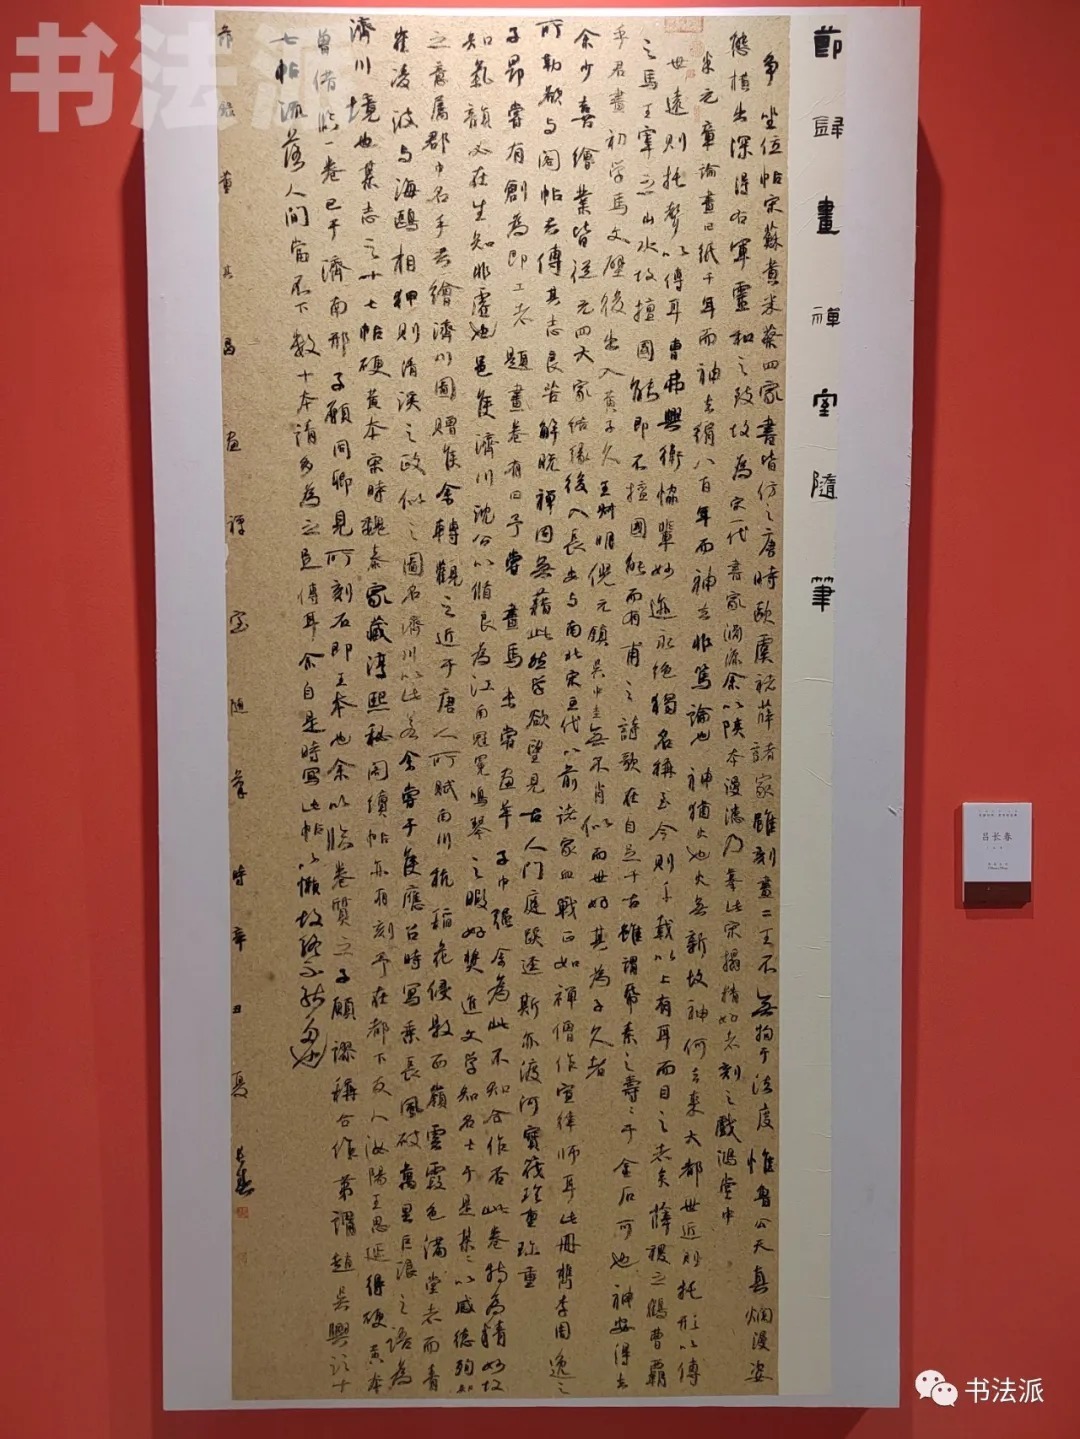 節歸畫禪室隨筆
争坐位帖宋蘇黄米蔡四家書皆仿之唐時歐虞褚薛諸家雖刻畫二王不無拘于法度惟魯公天真爛漫姿
態横出深得右軍靈和之致故為宋一代書家淵源余以陝本漫漶乃摹此宋搨精好者刻之戲鴻堂中
米元章論畫曰紙千年而神去絹八百年而神去非篤論也神猶火也火無新故神何去來大都世近則托形以傳
世遠則托聲以傳耳曹弗興衛協輩妙迹永絶獨名稱至今則千載以上有耳而目之者矣薛稷之鶴曹霸
之馬王宰之山水故擅國能即不擅國能而有甫之詩歌在自足千古雖謂紙素之壽壽于金石可也神安得去
乎君畫初學馬文璧後出入黄子久王叔明倪元鎮吴仲圭無不肖似而世好其為子久者
余少喜繪業皆從元四大家結緣後入長安與南北宋五代以前諸家血戰正如禪僧作宣律師耳此册舊李周逸之
所勒歟與閣帖者傳其志良苦解脱禪固無藉此然學欲望見古人門庭蹊逕斯亦渡河寶筏珍重珍重
子昂嘗有創為即工者題畫卷有曰予嘗畫馬未嘗畫羊子中强余為此不知合作否此卷特為精妙故
知氣韻必在生知非虚也邑侯濟川沈公以循良為江南冠冕鳴琴之暇好奬進文學知名士于是某某以感德陶知
之意属郡中名手君繪濟川圖贈侯余轉觀之近于唐人所賦南川秔稻花侵縣西嶺雲霞色滿堂者而青
雀凌波與海鷗相狎則清溪之政似之圖名濟川以此若余嘗于侯應召時寫乘長風破萬里巨浪之語為
濟川境也某志之十七帖硬黄本宋時魏泰家藏淳熙秘閣續帖亦有刻予在都下友人汝陽王思延得硬黄本
曾借臨一卷已于濟南邢子愿同卿見所刻石即王本也余以臨卷質之子愿謬稱合作第謂趙吴興臨十
七帖流落人間當不下數十本請多為之足傳耳余自是時寫此帖以懒故終不能多也
節錄董其昌畫禪室隨筆時辛丑夏長春
吕长春
书法派
书法派